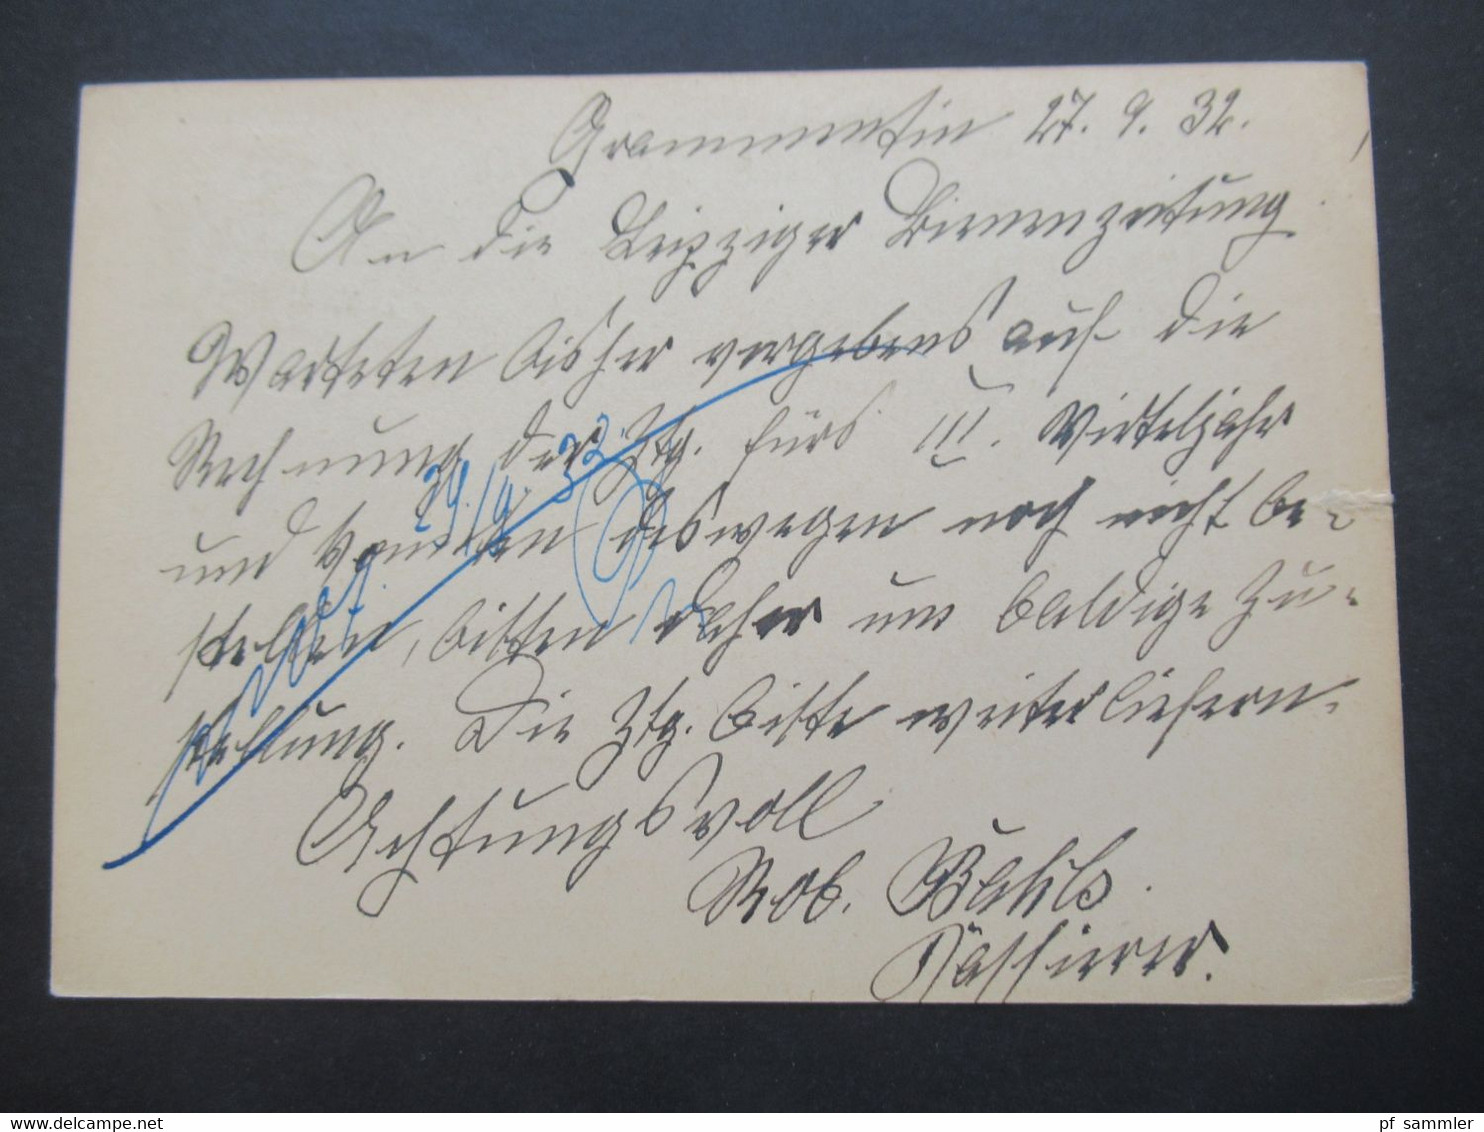 Grammentin 27. 9. 32.
An die Leipziger Bienenzeitung
Warteten bisher vergebens auf die
Rechnung der Ztg. fürs III. Vierteljahr
und konnten deswegen noch nicht be-
stellen, bitten daher um baldige Zu-
stellung. Die Ztg. bitte weiterliefern.
Achtungsvoll
Rob.
Kassierer.
29./9. 32
www.delcampe.net
pf_sammler